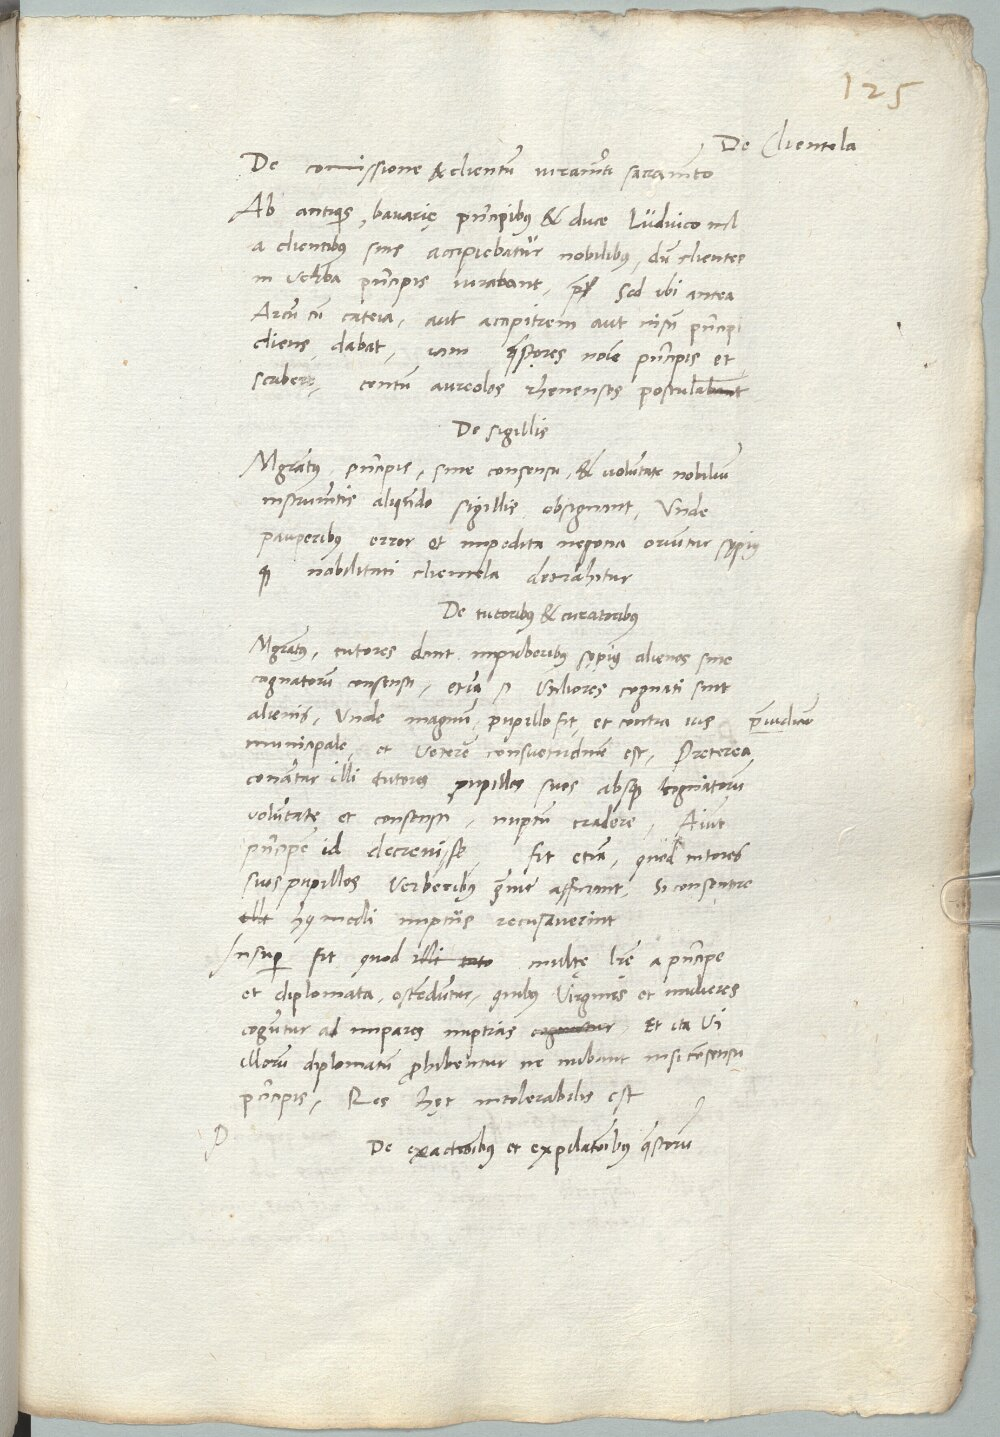 125
De Clientela
De comissione & clientū iuramēti sacramēto
Ab antiquis, bavarię prīcipibus & duce Ludvico nil
a clientibus suis accipiebatur nobilibus, dū clientes
in verba prīcipis iurabant, Sed ubi antea
Arcū cū cateia, aut accipitrem aut nisū prīcipi
cliens dabat, iam questores noīe prīcipis et
scribere, centū aureolos rhenenses postulabant
De sigillis
Mgratus prīcipis, sine consensu, & volūtate nobiliū
instrumētis aliqūdo sigillis obsignant, Unde
pauperibus error et impedita negotia oriūtur sępius
que nobilitati clientela detrahitur
De tutoribus & curatoribus
Mgratus, tutores dant impuberibus sępius alienos sine
cognatorū consensu, etiā si Utiliores cognati sint
alienis, Unde magnū pupillo fit, et contra ius pręiudiciū
municipale, et Veterē consuetudinē est, Preterea
conātur illi tutores pupillos suos absque cognatorū
volūtate et consensu, nuptū tradere, Aiūt
prīcipē id decrevisse, fit etiā, quod tutores
suos pupillos Verberibus graviter afficiunt, Si consentire
illi hymedi nuptiis recusaverint
Insuper fit quod illi tuto multę lr̄e a prīcipe
et diplomata, ostēdūtur, quibus Virgines et mulieres
cogūtur ad impares nuptias coguntur Et ita Vi
illorū diplomatū prohibentur ne nubant nisi cōsensu
prīcipis, Res hęc intolerabilis est
De exactiōibus et expilatiōibus questorū